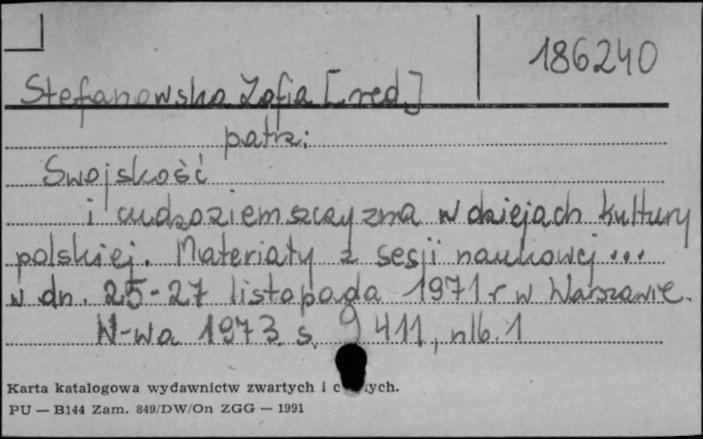 186240
Stefanowska Zofia [red.]
patrz:
Swojskość
i cudzoziemszczyzna w dziejach kultury
polskiej. Materiały z sesji naukowej...
w dn. 25-27 listopada 1971 r w Warszawie.
W-wa 1973 s. 411, nlb. 1
Karta katalogowa wydawnictw zwartych i c ych.
PU — B144 Zam. 849/DW/On ZGG — 1991